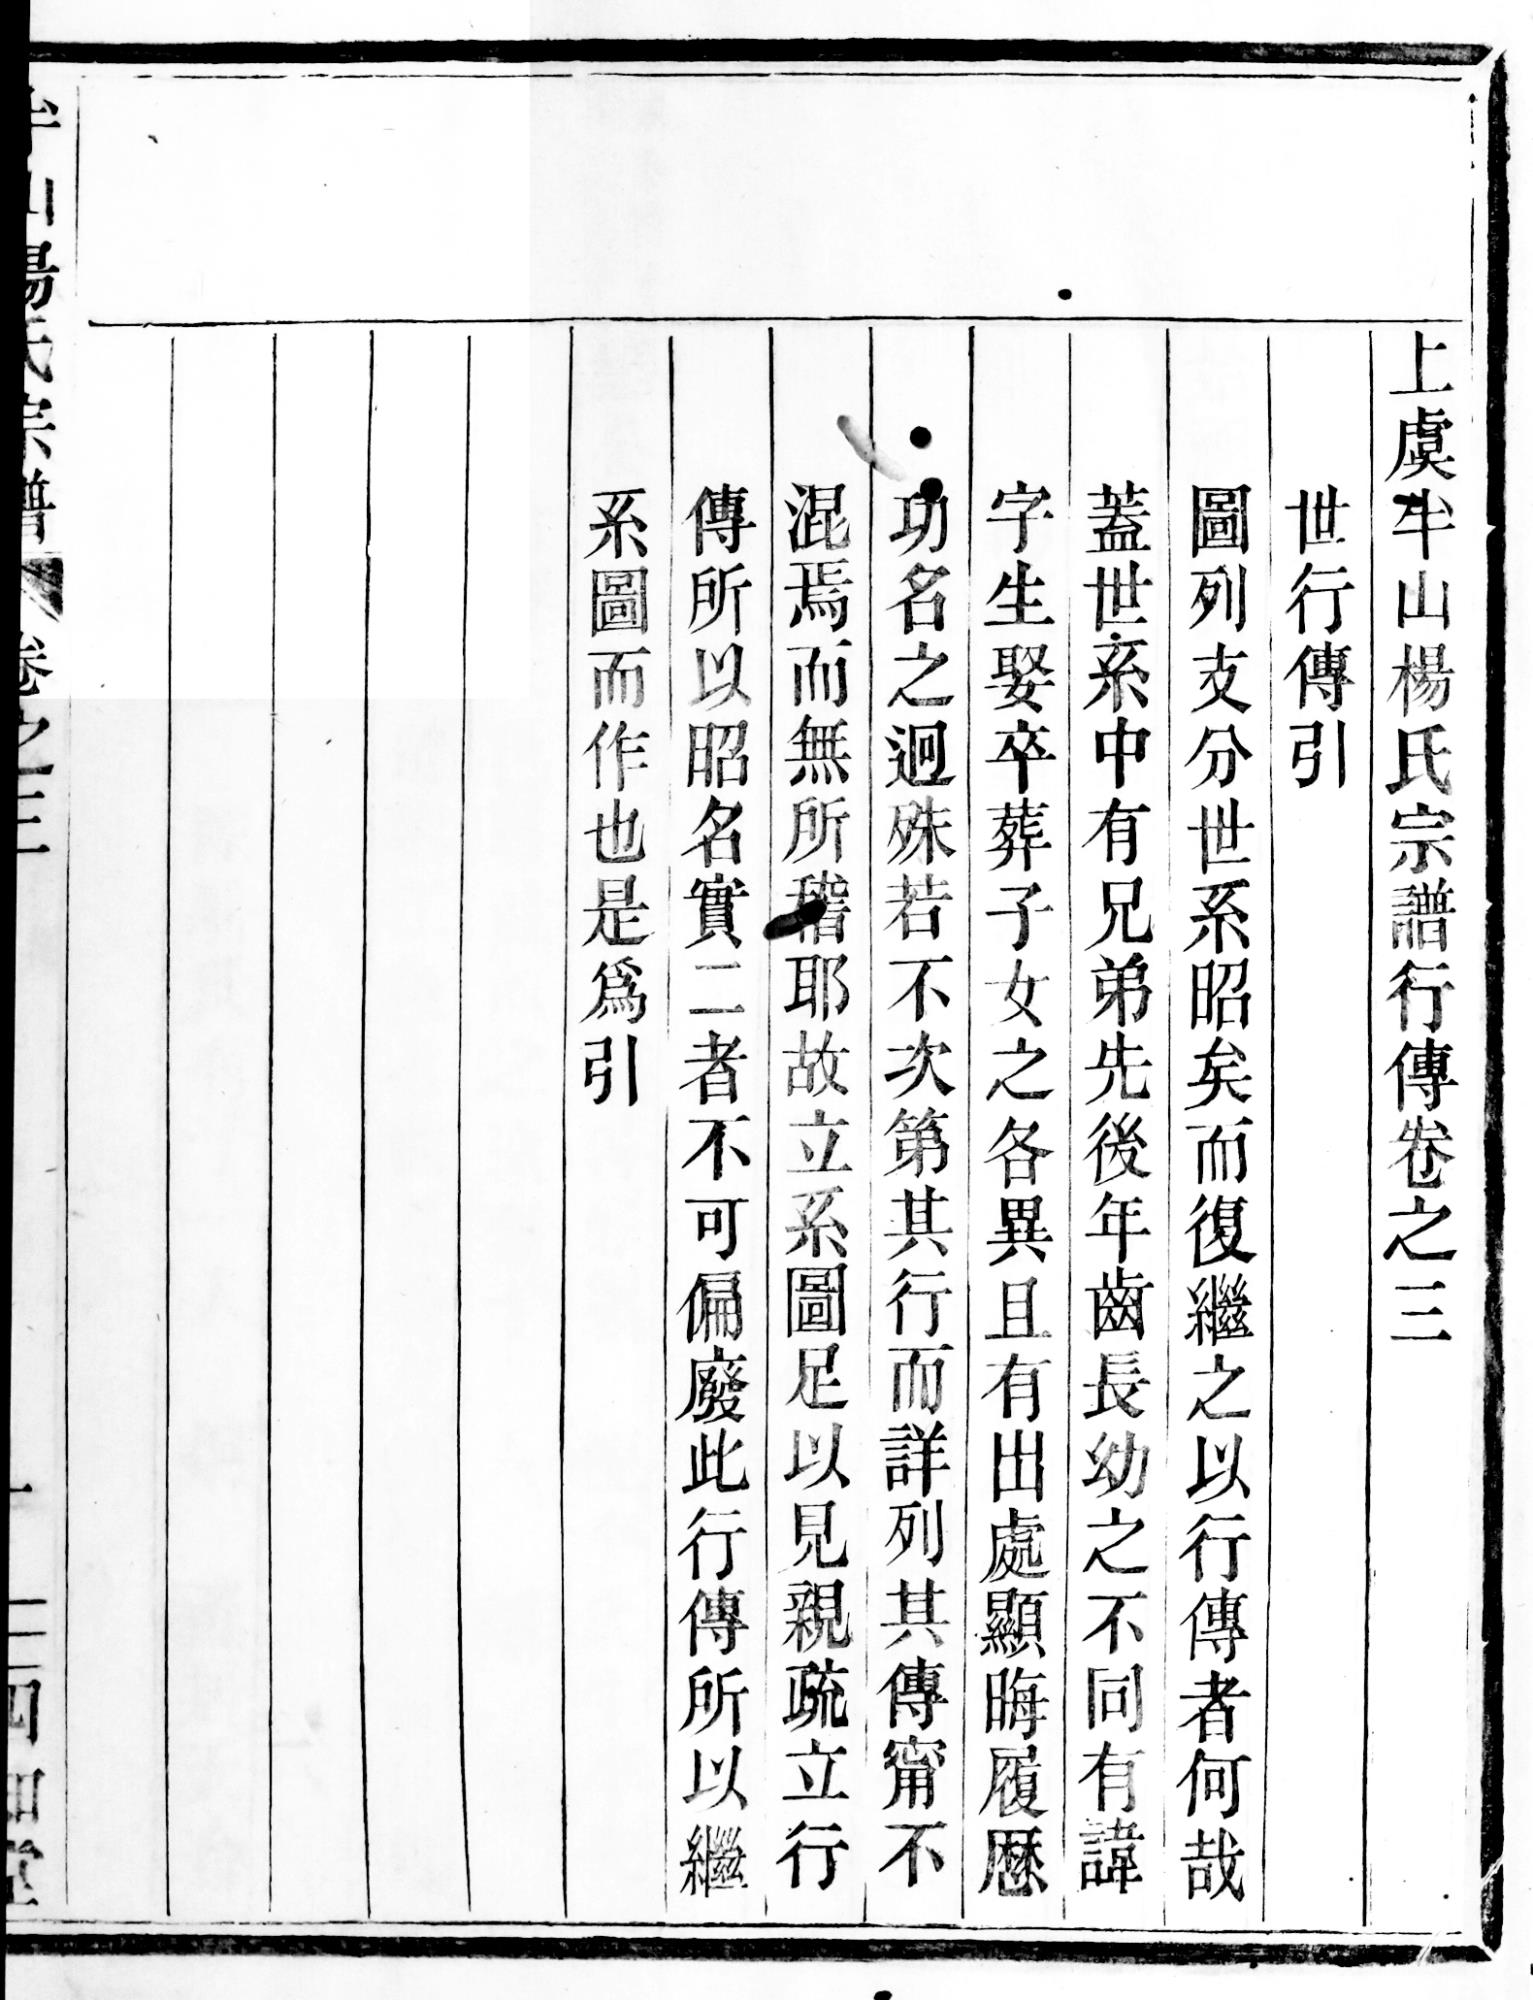 上虞半山楊氏宗譜行傳卷之三
世行傳引
圖列支分世系昭矣而復繼之以行傳者何哉
蓋世系中有兄弟先後年齒長幼之不同有諱
字生娶卒葬子女之各異且有出處顯晦履歷
功名之迥殊若不次第其行而詳列其傳甯不
混焉而無所稽耶故立系圖足以見親疏立行
傳所以昭名實二者不可偏廢此行傳所以繼
系圖而作也是爲引
半山楊氏宗譜 卷之三 一 四知堂